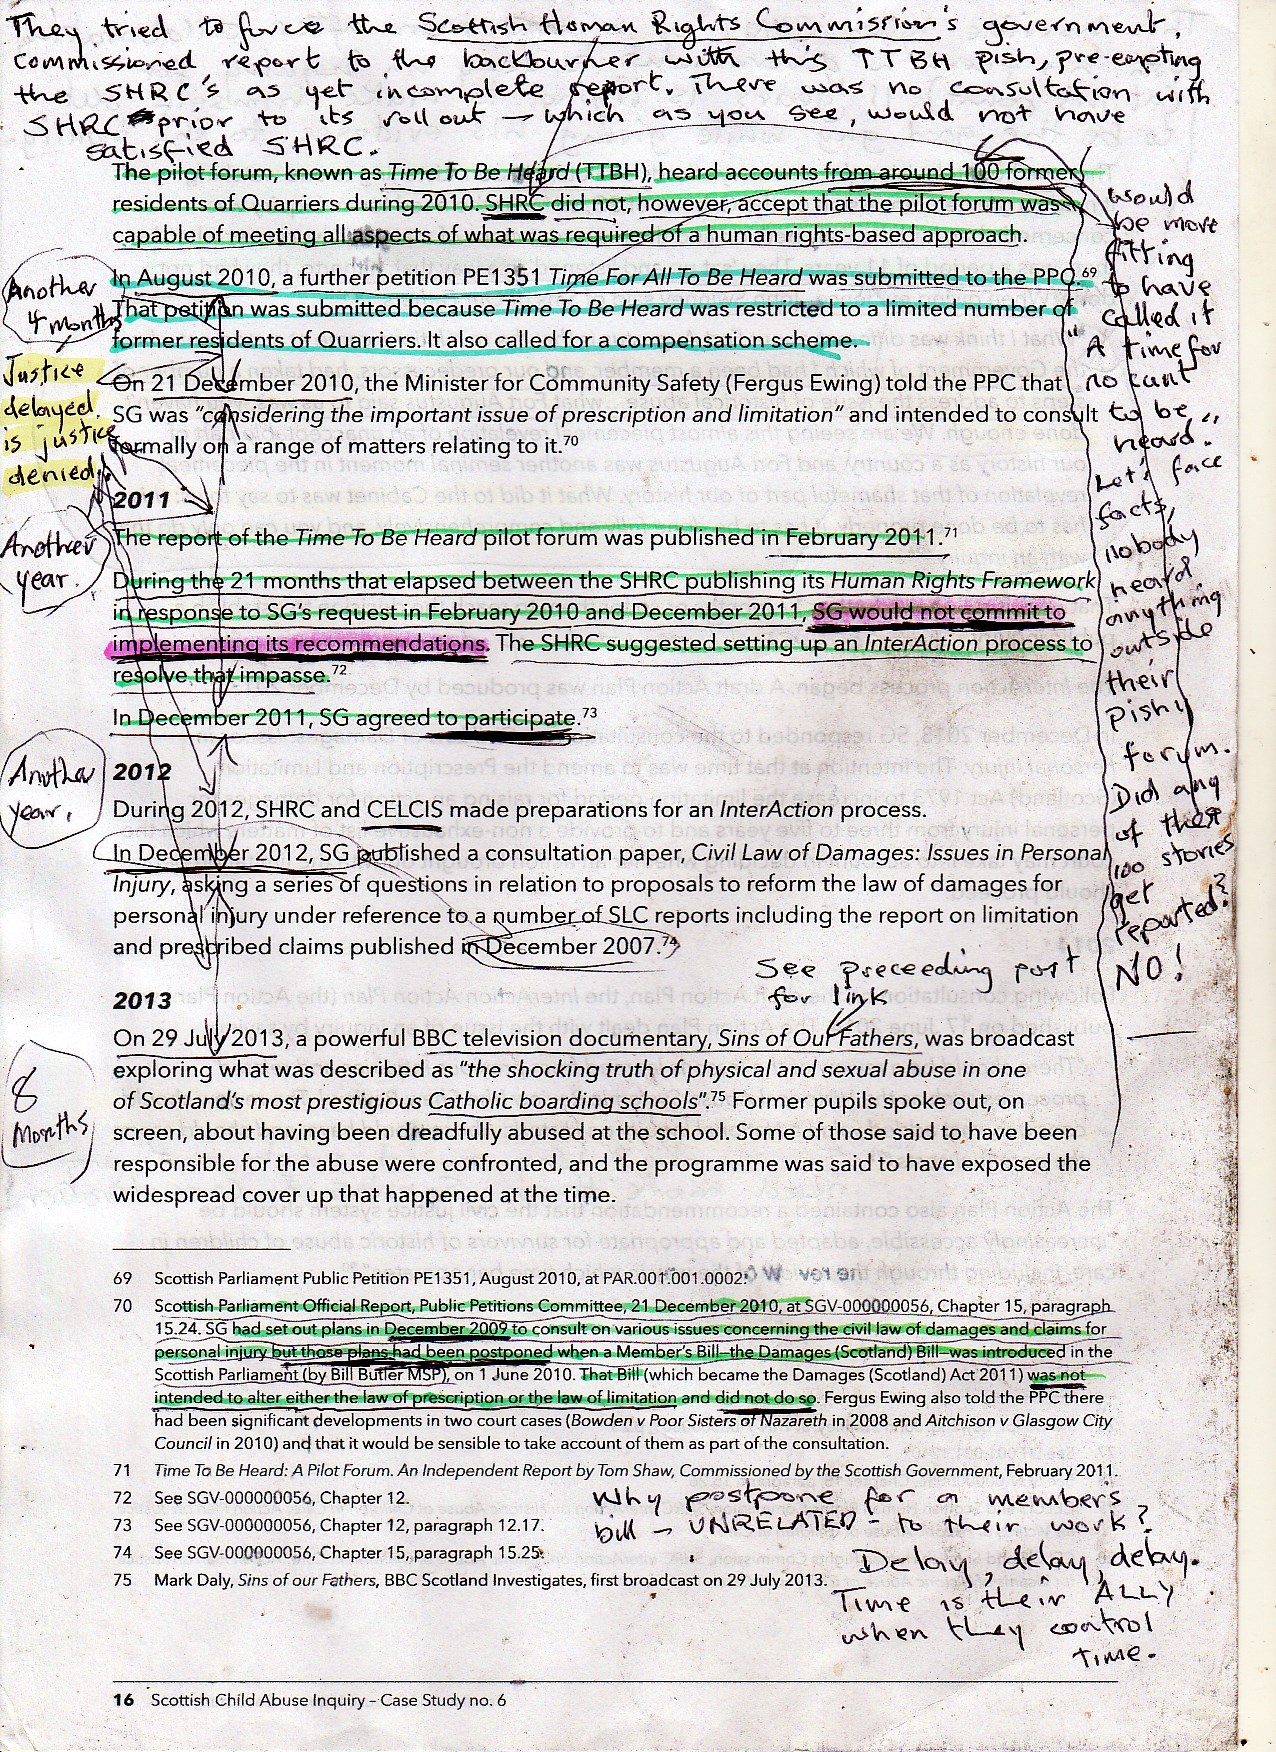 They tried to force the Scottish Human Rights Commission's government,
commissioned report to the backburner with this TTBH pish, pre-empting
the SHRC's as yet incomplete report. There was no consultation with
SHRC prior to its roll out – which as you see, would not have
satisfied SHRC.
The pilot forum, known as Time To Be Heard (TTBH), heard accounts from around 100 former
residents of Quarriers during 2010. SHRC did not, however, accept that the pilot forum was
capable of meeting all aspects of what was required of a human rights-based approach.
In August 2010, a further petition PE1351 Time For All To Be Heard was submitted to the PPC.69
That petition was submitted because Time To Be Heard was restricted to a limited number of
former residents of Quarriers. It also called for a compensation scheme.
On 21 December 2010, the Minister for Community Safety (Fergus Ewing) told the PPC that
SG was "considering the important issue of prescription and limitation" and intended to consult
formally on a range of matters relating to it.70
2011
The report of the Time To Be Heard pilot forum was published in February 2011.71
During the 21 months that elapsed between the SHRC publishing its Human Rights Framework
in response to SG's request in February 2010 and December 2011, SG would not commit to
implementing its recommendations. The SHRC suggested setting up an InterAction process to
resolve that impasse.72
In December 2011, SG agreed to participate.73
2012
During 2012, SHRC and CELCIS made preparations for an InterAction process.
In December 2012, SG published a consultation paper, Civil Law of Damages: Issues in Personal
Injury, asking a series of questions in relation to proposals to reform the law of damages for
personal injury under reference to a number of SLC reports including the report on limitation
and prescribed claims published in December 2007.74
2013
On 29 July 2013, a powerful BBC television documentary, Sins of Our Fathers, was broadcast
exploring what was described as "the shocking truth of physical and sexual abuse in one
of Scotland's most prestigious Catholic boarding schools".75 Former pupils spoke out, on
screen, about having been dreadfully abused at the school. Some of those said to have been
responsible for the abuse were confronted, and the programme was said to have exposed the
widespread cover up that happened at the time.
Another
4 months
Justice
delayed,
is justice
denied.
Another
year.
Another
year.
8
Months
Would
be more
fitting
to have
called it
"A time for
no cunt
to be
heard."
Let's face
facts,
nobody
heard
anything
outside
their
pishy
forum.
Did any
of their
100 stories
get
reported?
NO!
See preceeding post
for link
69 Scottish Parliament Public Petition PE1351, August 2010, at PAR.001.001.0002.
70 Scottish Parliament Official Report, Public Petitions Committee, 21 December 2010, at SGV-000000056, Chapter 15, paragraph
15.24. SG had set out plans in December 2009 to consult on various issues concerning the civil law of damages and claims for
personal injury but those plans had been postponed when a Member's Bill–the Damages (Scotland) Bill–was introduced in the
Scottish Parliament (by Bill Butler MSP), on 1 June 2010. That Bill (which became the Damages (Scotland) Act 2011) was not
intended to alter either the law of prescription or the law of limitation and did not do so. Fergus Ewing also told the PPC there
had been significant developments in two court cases (Bowden v Poor Sisters of Nazareth in 2008 and Aitchison v Glasgow City
Council in 2010) and that it would be sensible to take account of them as part of the consultation.
71 Time To Be Heard: A Pilot Forum. An Independent Report by Tom Shaw, Commissioned by the Scottish Government, February 2011.
72 See SGV-000000056, Chapter 12.
73 See SGV-000000056, Chapter 12, paragraph 12.17.
74 See SGV-000000056, Chapter 15, paragraph 15.25.
75 Mark Daly, Sins of our Fathers, BBC Scotland Investigates, first broadcast on 29 July 2013.
Why postpone for a members
bill – UNRELATED – to their work?
Delay, delay, delay.
Time is their ALLY
when they control
time.
16 Scottish Child Abuse Inquiry – Case Study no. 6